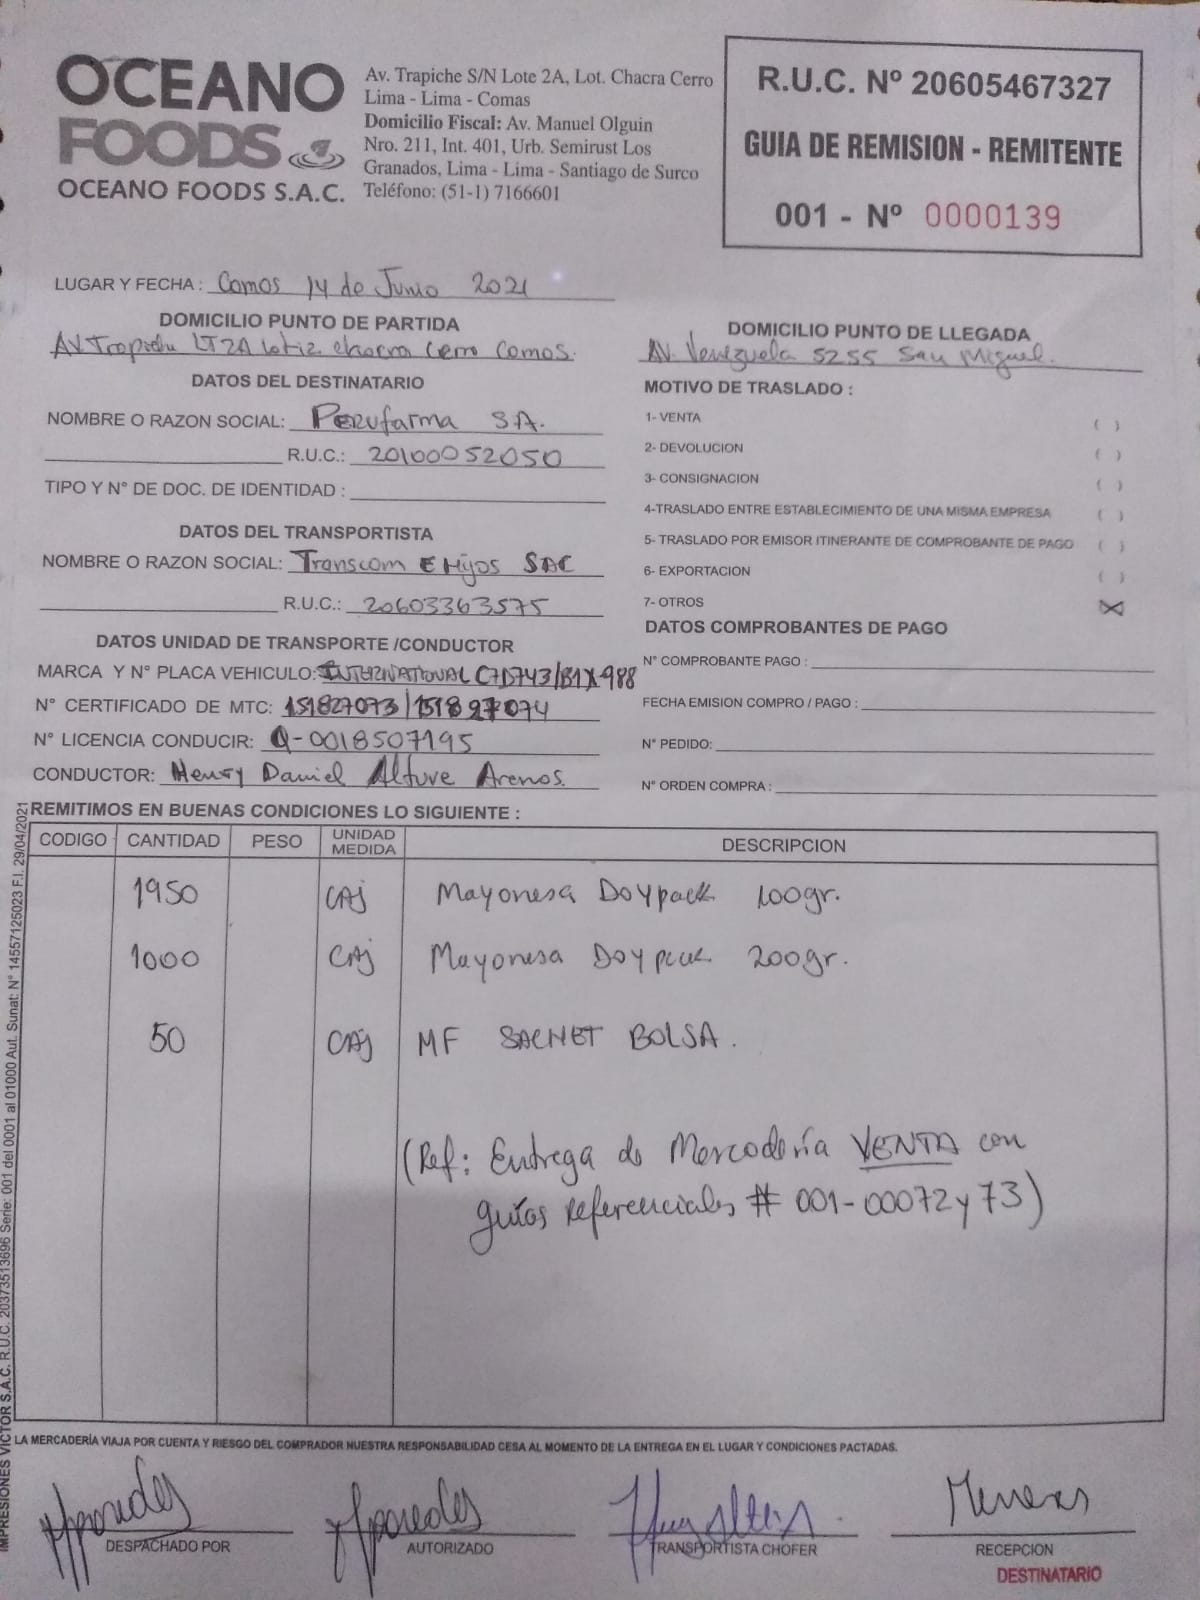 OCEANO
FOODS
OCEANO FOODS S.A.C.
Av. Trapiche S/N Lote 2A, Lot. Chacra Cerro
Lima - Lima - Comas
Domicilio Fiscal: Av. Manuel Olguin
Nro. 211, Int. 401, Urb. Semirust Los
Granados, Lima - Lima - Santiago de Surco
Teléfono: (51-1) 7166601
R.U.C. Nº 20605467327
GUIA DE REMISION - REMITENTE
001 - Nº 0000139
LUGAR Y FECHA : Comas 14 de Junio 2021
DOMICILIO PUNTO DE PARTIDA
AV Trapiche LT2A Lotiz chacra cerro Comas.
DOMICILIO PUNTO DE LLEGADA
AV. Venezuela 5255 San Miguel.
DATOS DEL DESTINATARIO
NOMBRE O RAZON SOCIAL: PERUfarma SA.
R.U.C.: 20100052050
TIPO Y N° DE DOC. DE IDENTIDAD :
DATOS DEL TRANSPORTISTA
NOMBRE O RAZON SOCIAL: Transcom E Hijos SAC
R.U.C.: 20603363575
DATOS UNIDAD DE TRANSPORTE /CONDUCTOR
MARCA Y N° PLACA VEHICULO: INTERNATIONAL C7D743/B1X-988
N° CERTIFICADO DE MTC: 151827073/151827074
N° LICENCIA CONDUCIR: Q-0018507195
CONDUCTOR: Henry Daniel Altuve Arenas.
MOTIVO DE TRASLADO :
1- VENTA ( )
2- DEVOLUCION ( )
3- CONSIGNACION ( )
4-TRASLADO ENTRE ESTABLECIMIENTO DE UNA MISMA EMPRESA ( )
5- TRASLADO POR EMISOR ITINERANTE DE COMPROBANTE DE PAGO ( )
6- EXPORTACION ( )
7- OTROS (X)
DATOS COMPROBANTES DE PAGO
N° COMPROBANTE PAGO :
FECHA EMISION COMPRO / PAGO :
N° PEDIDO:
N° ORDEN COMPRA :
REMITIMOS EN BUENAS CONDICIONES LO SIGUIENTE :
CODIGO CANTIDAD PESO UNIDAD MEDIDA DESCRIPCION
1950 CAj Mayonesa Doypack 100gr.
1000 CAj Mayonesa Doypack 200gr.
50 CAj MF SACHET BOLSA.
(Ref: Entrega de Mercadería VENTA con
guías referenciales # 001-00072 y 73)
IMPRESIONES VICTOR S.A.C. R.U.C. 20373513696 Serie: 001 del 0001 al 01000 Aut. Sunat: N° 14557125023 F.I. 29/04/2021
LA MERCADERÍA VIAJA POR CUENTA Y RIESGO DEL COMPRADOR NUESTRA RESPONSABILIDAD CESA AL MOMENTO DE LA ENTREGA EN EL LUGAR Y CONDICIONES PACTADAS.
DESPACHADO POR
AUTORIZADO
TRANSPORTISTA CHOFER
RECEPCION
DESTINATARIO